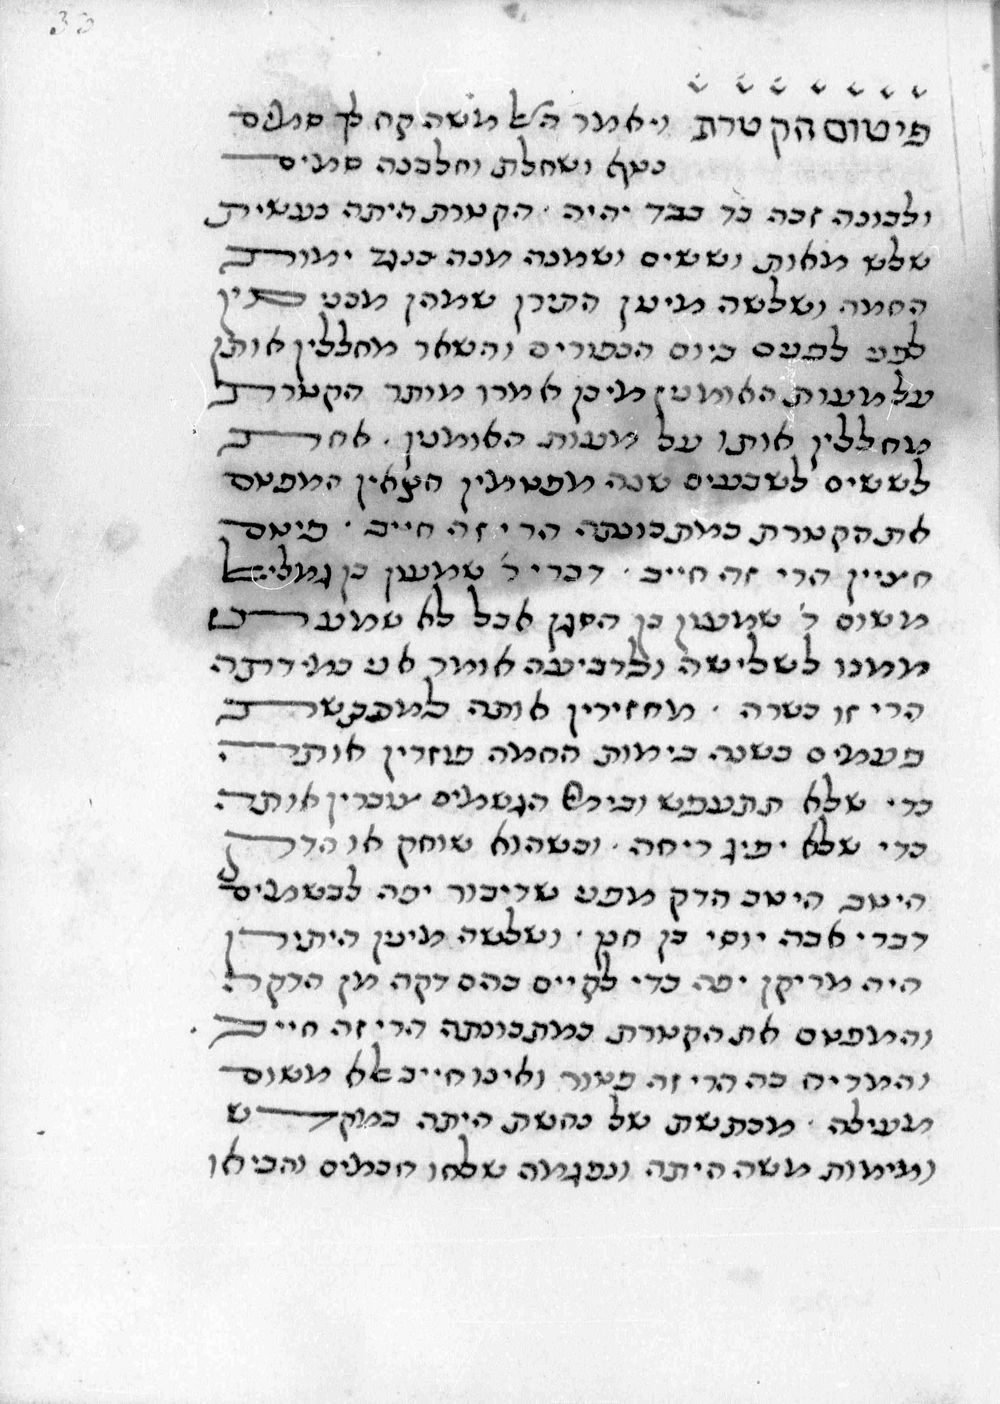 30
פיטום הקטרת ויאמר ה' אל משה קח לך סמים
נטף ושחלת וחלבנה סמים
ולבונה זכה בד בבד יהיה · הקטרת היתה נעשית
שלש מאות וששים ושמנה מנה כנגד ימות
החמה ושלשה מיען התירן שמהן מכניסין
לפני לפנים ביום הכפורים והשאר מחללין אותן
על מעות האומנין מיכן אמרו מותר הקטרת
מחללין אותו על מעות האומנין · אחת
לששים לשבעים שנה מפטמין חצאין המפטם
את הקטרת במתכונתה הרי זה חייב · פיטם
חציין הרי זה חייב · דברי ר' שמעון בן גמליאל
משום ר' שמעון בן הסגן אבל לא שמעתי
ממנו לשלישה ולרביעה אומר אני כמידתה
הרי זו כשרה · מחזירין אותה למכתשת
פעמים בשנה בימות החמה פוזרין אותה
כדי שלא תתעפש ובימות הגשמים צוברין אותה
כדי שלא יפיג ריחה · וכשהוא שוחק או הדק
היטב היטב הדק מפני שדיבור יפה לבשמים
דברי אבה יוסי בן חנן · ושלשה מיען היתירן
היה מדיקן יפה כדי לקיים בהם דקה מן הדקה
והמפטם את הקטרת במתכונתה הרי זה חייב
והמריח בה הרי זה פטור ואינו חייב אלא משום
מעילה · מכתשת של נחשת היתה במקדש
ומימות משה היתה ונפגמה שלחו חכמים והביאו